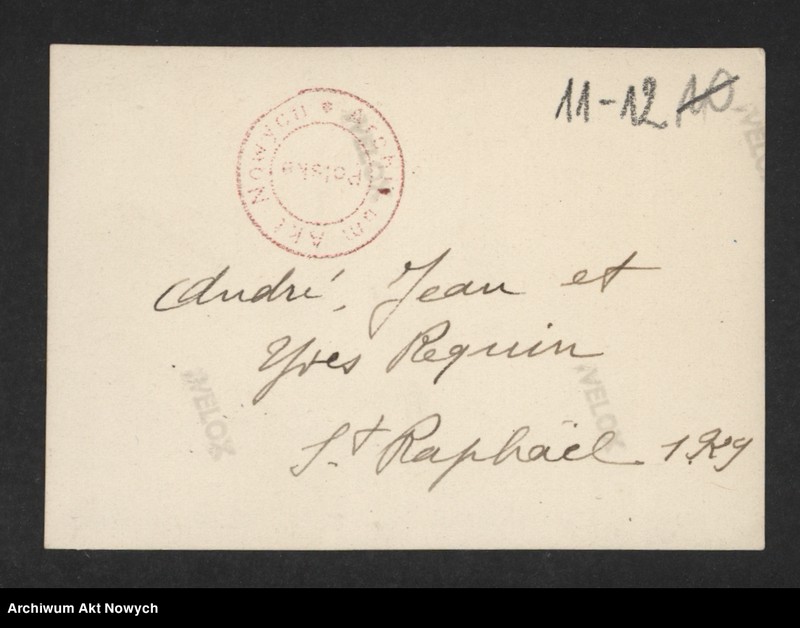 11-12 10
Archiwum Akt Nowych * Polska
VELOX
VELOX
André, Jean et
Yves Requin
VELOX
VELOX
St Raphaël 1929
Archiwum Akt Nowych